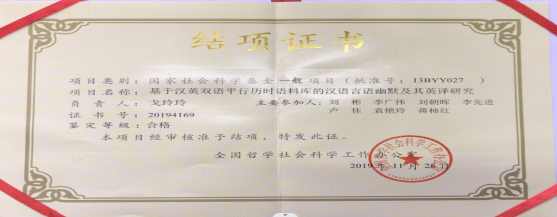 结项证书
项目类别：国家社会科学基金一般项目（批准号：13BYY027）
项目名称：基于汉英双语平行历时语料库的汉语言语幽默及其英译研究
负责人：戈玲玲 主要参加人：刘彬 李广伟 刘朝晖 李先进
卢佳 袁艳玲 蒋柿红
证书号：20194169
鉴定等级：合格
本项目经审核准予结项，特发此证。
全国哲学社会科学工作办公室
2019年11月28日